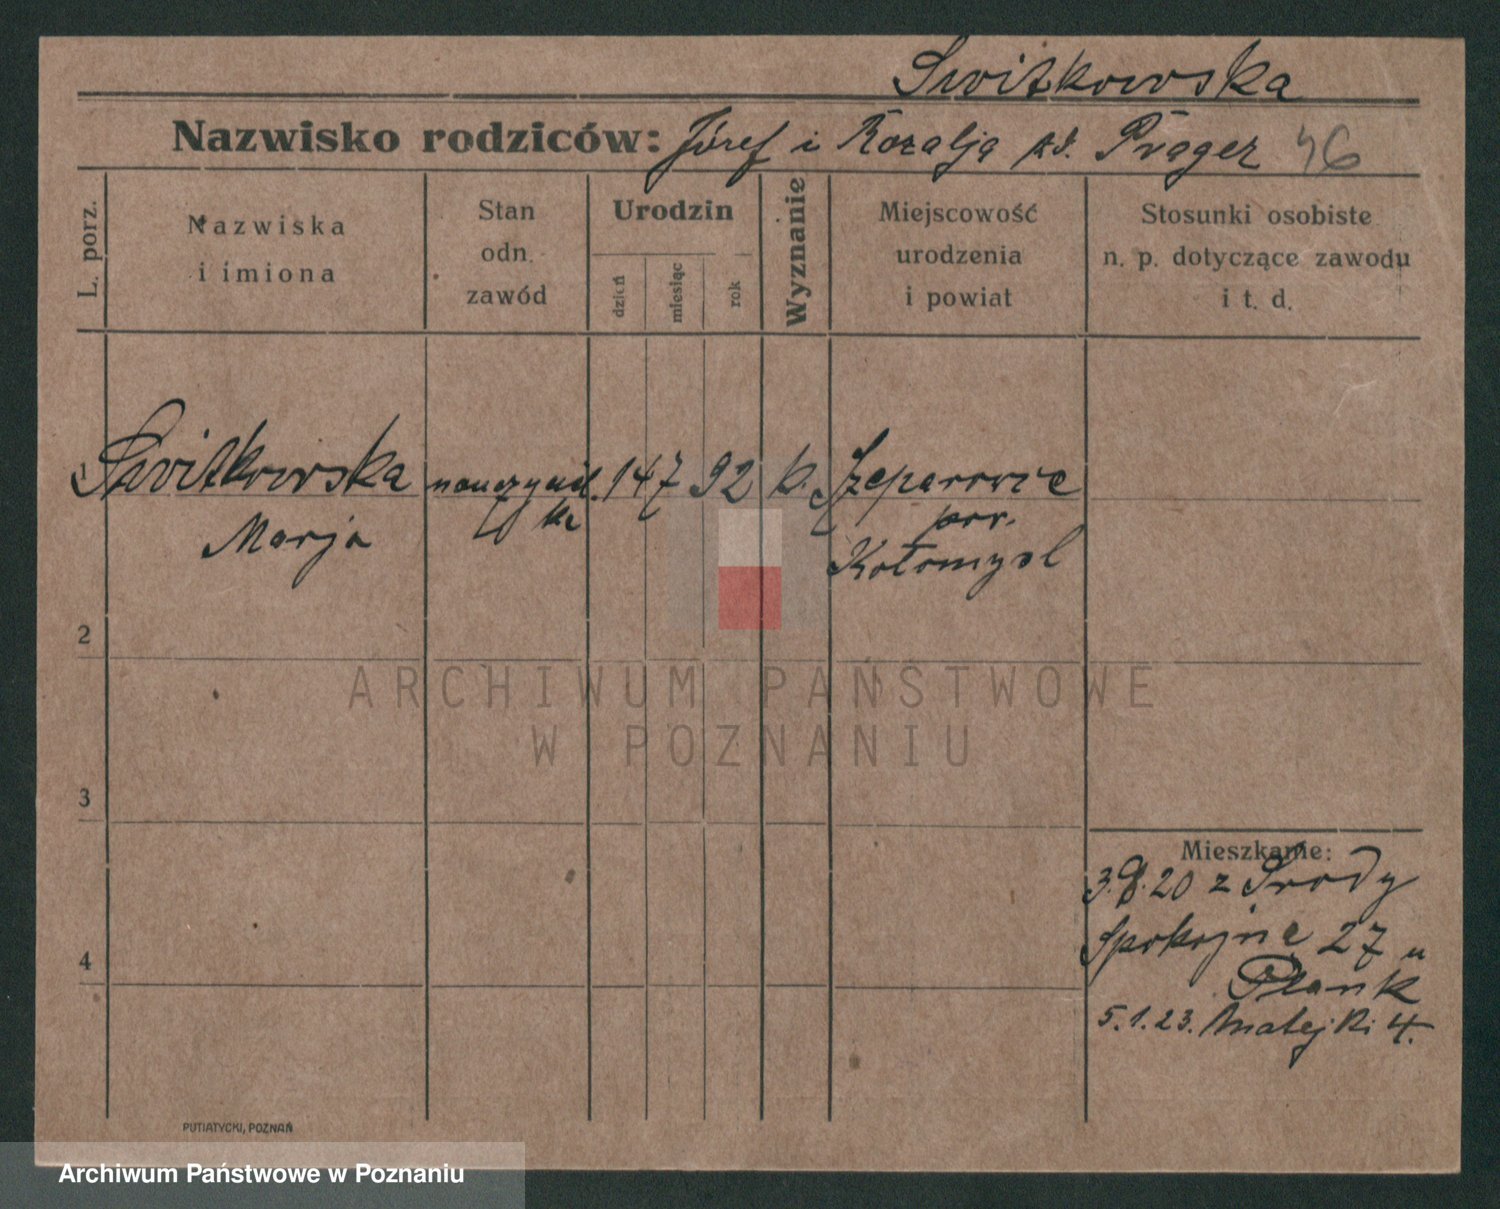 Switkowska
Nazwisko rodziców: Józef i Rozalja zd. Prager 46
L. porz.
Nazwiska
i imiona
Stan
odn.
zawód
Urodzin
dzień
miesiąc
rok
Wyznanie
Miejscowość
urodzenia
i powiat
Stosunki osobiste
n. p. dotyczące zawodu
i t. d.
1 Switkowska nauczyciel. 14 7 92 k. Szeparowce
ka pow.
Marja Kołomyol
2
3
4
Mieszkanie:
3.8.20 z Środy
Spokojna 27 u
Plank
5.1.23. Matejki 4.
PUTIATYCKI, POZNAŃ
ARCHIWUM PAŃSTWOWE
W POZNANIU
Archiwum Państwowe w Poznaniu